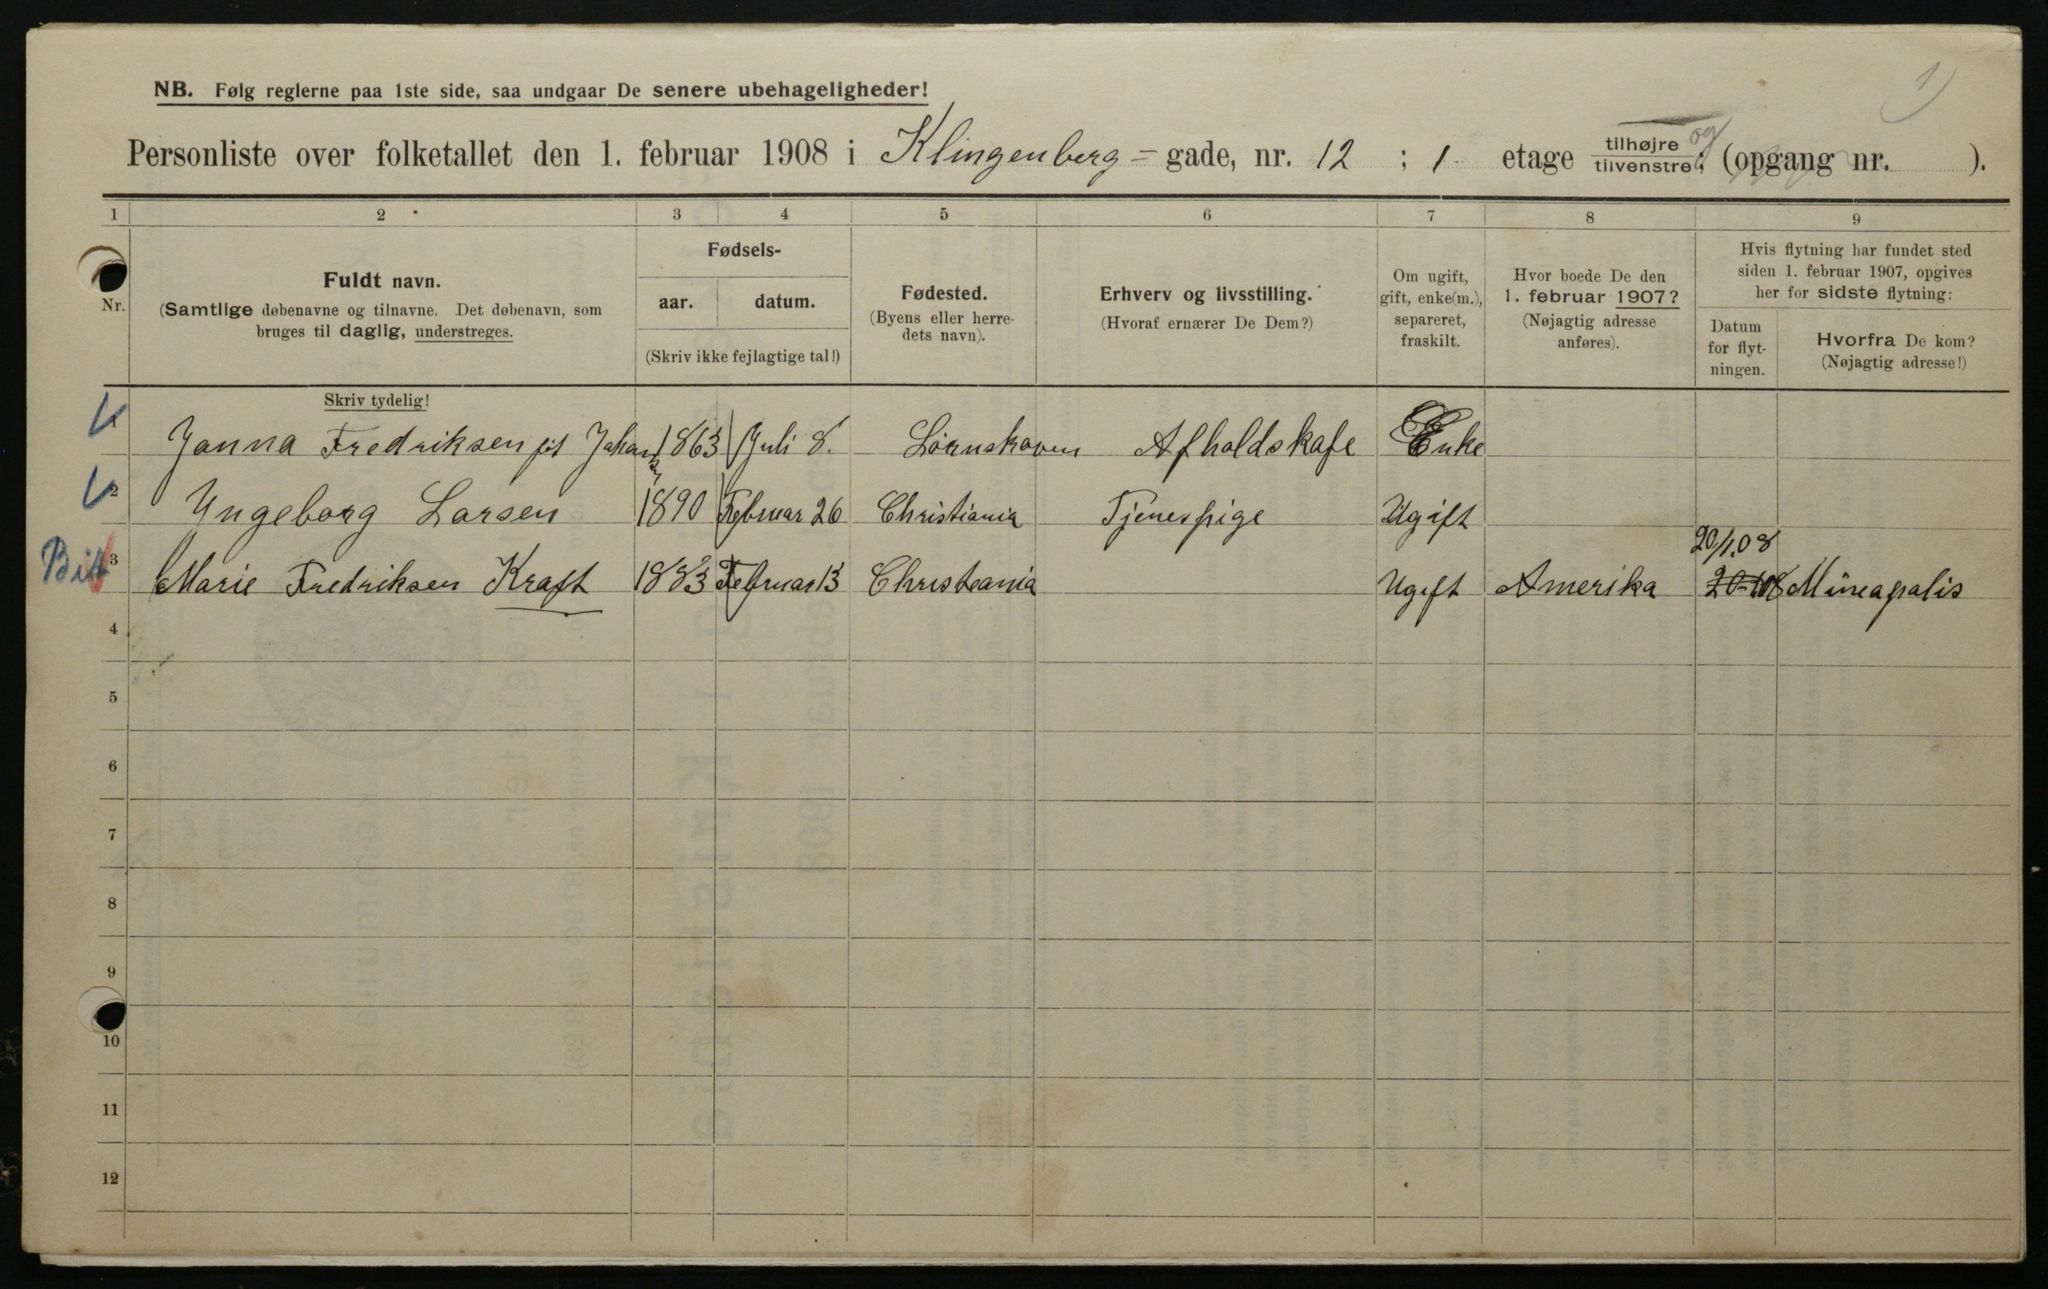 1)
NB. Følg reglerne paa 1ste side, saa undgaar De senere ubehageligheder!
Personliste over folketallet den 1. februar 1908 i Klingenberg - gade, nr. 12 ; 1 etage tilhøjre og tilvenstre; (opgang nr. ).
1 2 3 4 5 6 7 8 9
Nr.
Fuldt navn.
(Samtlige døbenavne og tilnavne. Det døbenavn, som
bruges til daglig, understreges.
Fødsels-
aar. datum.
(Skriv ikke fejlagtige tal!)
Fødested.
(Byens eller herre-
dets navn).
Erhverv og livsstilling.
(Hvoraf ernærer De Dem?)
Om ugift,
gift, enke(m.),
separeret,
fraskilt.
Hvor boede De den
1. februar 1907?
(Nøjagtig adresse
anføres).
Hvis flytning har fundet sted
siden 1. februar 1907, opgives
her for sidste flytning:
Datum
for flyt-
ningen.
Hvorfra De kom?
(Nøjagtig adresse!)
Skriv tydelig!
Janna Fredriksen 1863 Juli 8. Lörnskoven Afholdskafe Enke
2 Yngeborg Larsen 1890 Februar 26 Christiania Tjenespige Ugift
20/1.08
3 Marie Fredriksen Kraft 1883 Februar 13 Christeania Ugift Amerika Mineapalis
4
5
6
7
8
9
10
11
12